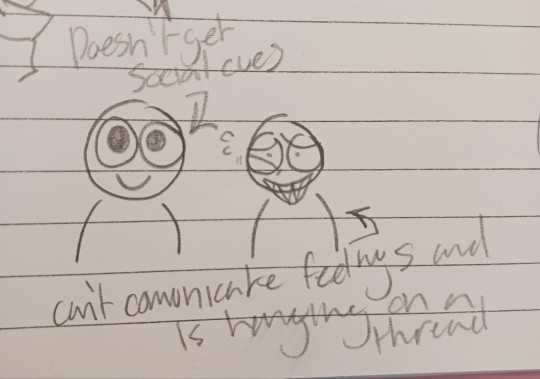 Doesn't get
social cues
can't comunicate feelings and
is hanging on a
thread